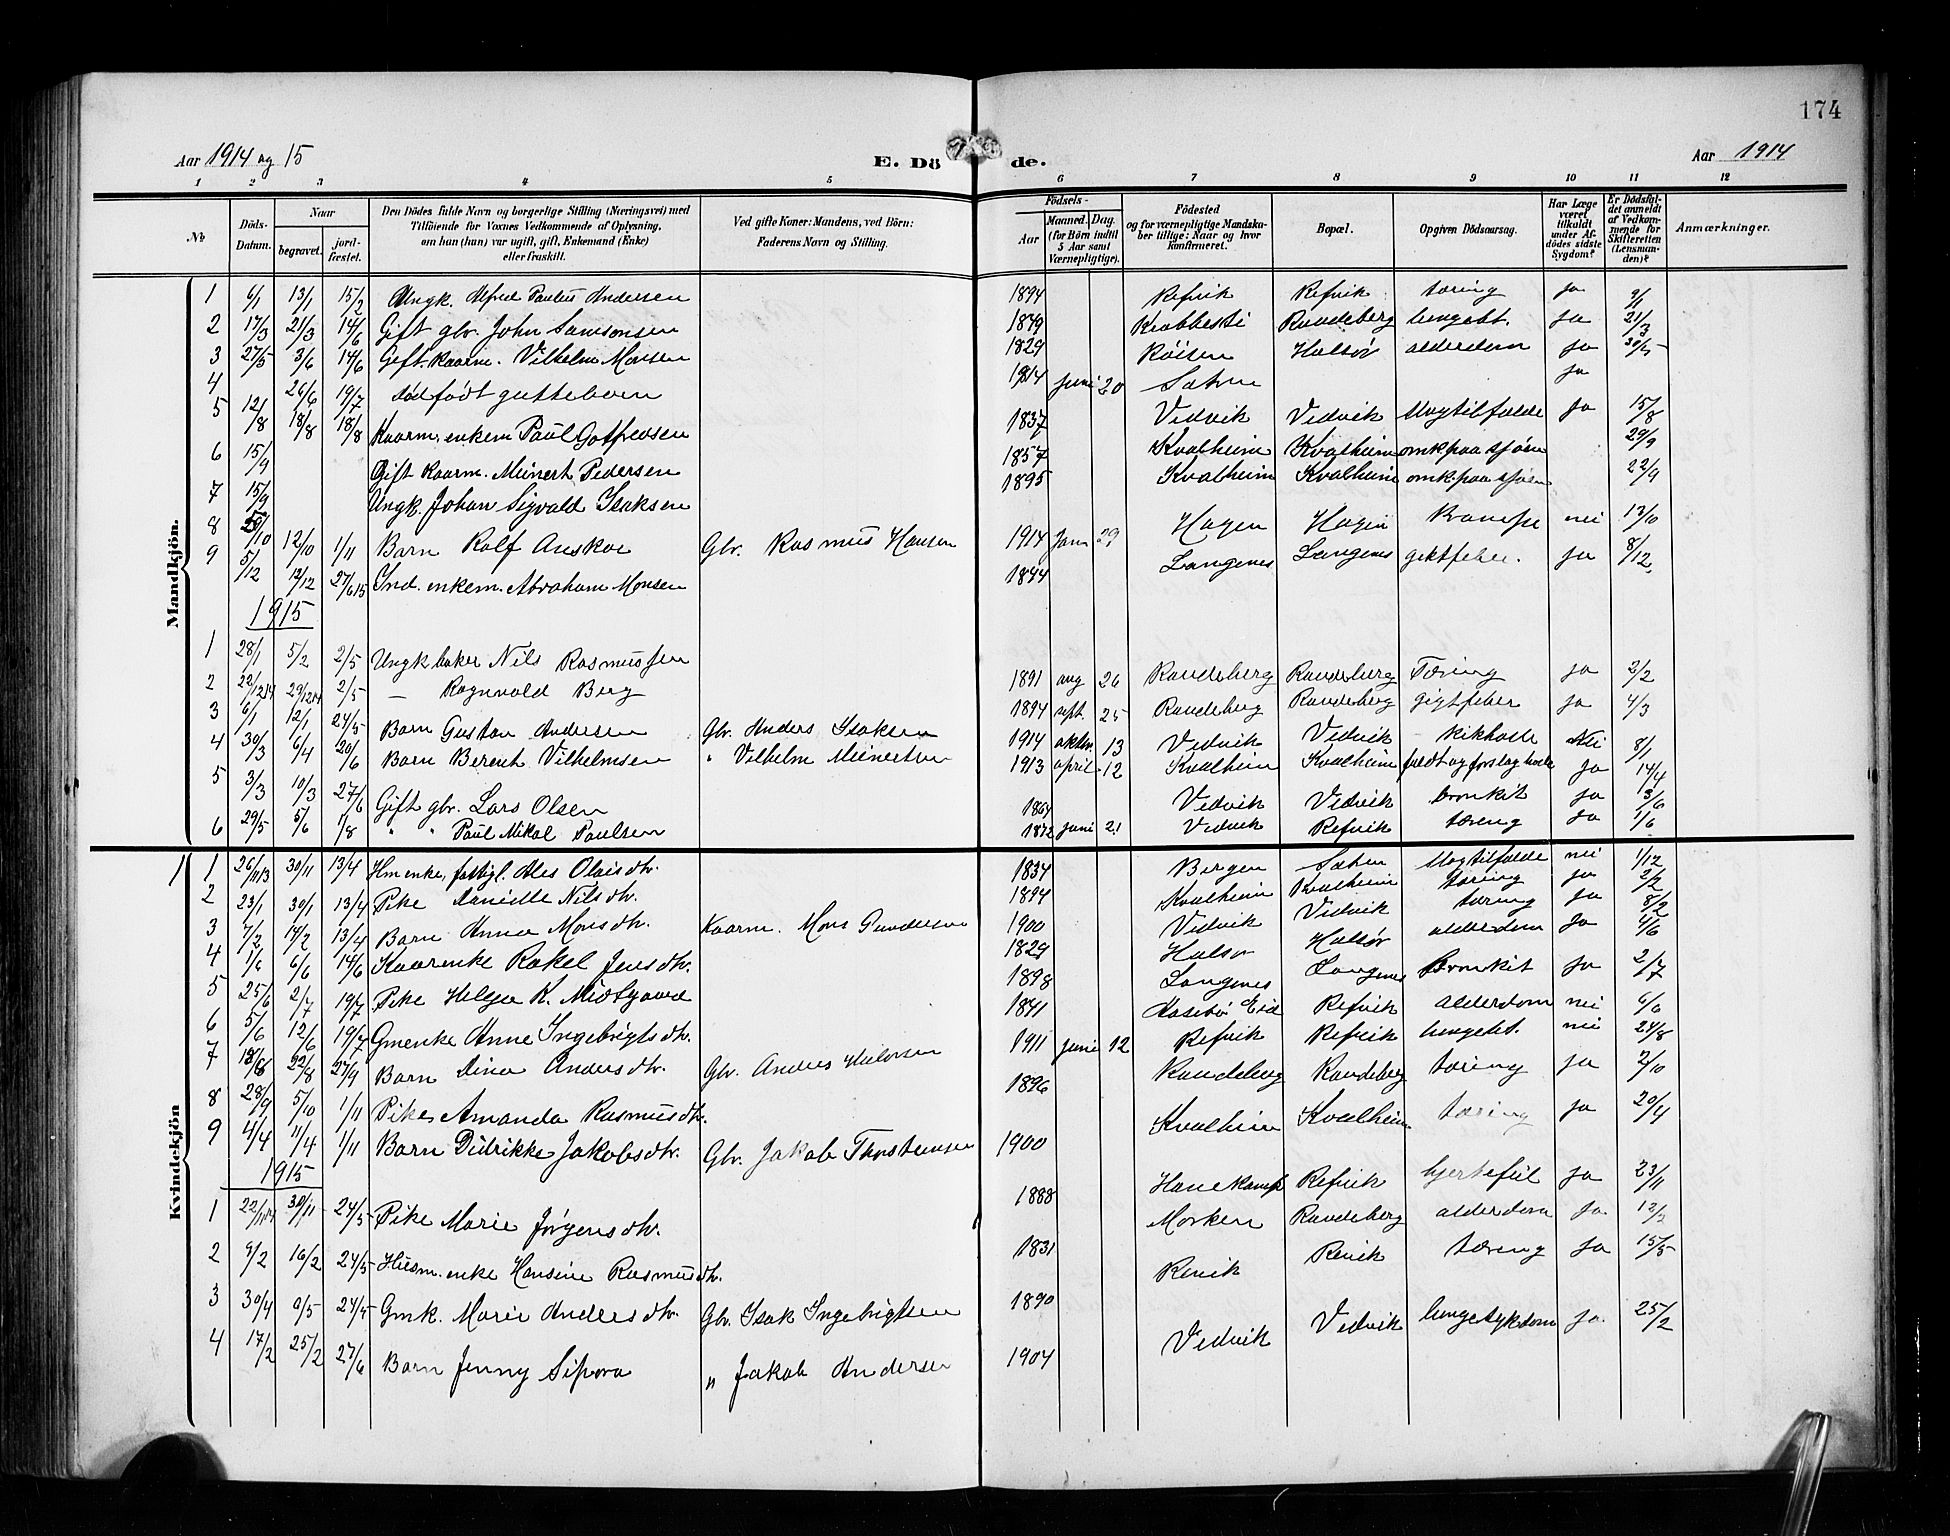 174
Aar 1914 og 15 E. Dö de. Aar 1914
1 2 3 4 5 6 7 8 9 10 11 12
No Döds-Datum. Naar begravet. jord-fæstet. Den Dödes fulde Navn og borgerlige Stilling (Næringsvei) med Tilföiende for Voxnes Vedkommende af Oplysning, om han (hun) var ugift, gift, Enkemand (Enke) eller fraskilt. Ved gifte Koner: Mandens, ved Börn: Faderens Navn og Stilling. Födsels- Aar Maaned. Dag. (for Börn indtil 5 Aar samt Værnepligtige). Födested og for værnepligtige Mandskaber tillige: Naar og hvor konfirmeret. Bopæl. Opgiven Dödsaarsag. Har Læge været tilkaldt under Afdödes sidste Sygdom? Er Dödsfaldet anmeldt af Vedkommende for Skifteretten (Lensmanden)? Anmærkninger.
Mandkjön.
1 6/1 13/1 15/2 Ungk. Alfred Paulus Andersen 1894 Refvik Refvik tæring ja 9/1
2 17/3 21/3 14/6 Gift gbr. John Samsonsen 1879 Krabbesti Raudeberg lungebt. ja 21/3
3 27/5 3/6 14/6 Gift. kaarm. Vilhelm Monsen 1829 Röisen Halsör alderdom ja 30/5
4 26/6 19/7 dødfødt guttebarn 1914 juni 20 Sætren ja
5 12/8 18/8 18/8 Kaarm. enkem Paul Gotfredsen 1837 Vedvik Vedvik slagtilfælde ja 15/8
6 15/9 Gift kaarm. Meinert Pedersen 1857 Kvalheim Kvalheim omk paa sjøen 29/9
7 15/9 Ungk. Johan Sigvald Isaksen 1895 Kvalheim Kvalheim omk. paa sjøen 22/9
8 12/10 1/11 Barn Rolf Anskar Gbr. Rasmus Hansen 1914 Jan 29 Hagen Hagen nei 13/10
9 5/12 12/12 27/6 15 Ind. enkem. Abraham Monsen 1844 Langenes Langenes giktfeber. ja 8/12
1915
1 28/1 5/2 2/5 Ungk baker Nils Rasmussen 1891 aug 26 Raudeberg Raudeberg Tæring ja 2/2
2 22/12 14 29/12 14 2/5 — Ragnvald Berg 1894 sept. 25 Raudeberg Raudeberg gigtfeber ja 4/3
3 6/1 12/1 24/5 Barn Gustav Andersen Gbr. Anders Isaksen 1914 oktbr. 13 Vedvik Vedvik kikhoste Nei 8/1
4 30/3 6/4 20/6 Barn Berent Vilhelmsen " Vilhelm Meinertsen 1913 april 12 Kvalheim Kvalheim ja 14/4
5 3/3 10/3 27/6 Gift gbr. Lars Olsen 1864 Vedvik Vedvik bronkit ja 3/6
6 29/5 5/6 1/8 " " Paul Mikal Paulsen 1872 juni 21 Vedvik Refvik tæring ja 1/6
Kvindekjön
1 26/11 13 30/11 13/4 Hmenke, fattigl. Ales Olaisdtr. 1834 Bergen Sætren slagtilfælde nei 1/12
2 23/1 30/1 13/4 Pike Danielle Nilsdtr. 1894 Kvalheim Kvalheim tæring ja 2/2
3 7/2 14/2 13/4 Barn Anna Monsdtr. Kaarm. Mons Gundersen 1900 Vedvik Vedvik tæring ja 8/2
4 1/6 6/6 14/6 Kaarenke Rakel Jensdtr. 1829 Halsör Halsör alderdom ja 4/6
5 25/6 2/7 19/7 Pike Helga K. Midtgaard 1898 Langenes Langenes Bronkit ja 2/7
6 5/6 12/6 19/7 Gmenke Anne Ingebrigtsdtr. 1841 Aasebø Eid Refvik alderdom nei 6/6
7 18/8 22/8 27/9 Barn Dina Andersdtr. Gbr. Anders Halvorsen 1911 juni 12 Refvik Refvik lungebt. nei 24/8
8 28/9 5/10 1/11 Pike Amanda Rasmusdtr. 1896 Raudeberg Raudeberg tæring ja 2/10
9 4/4 11/4 1/11 Barn Didrikke Jakobsdtr. Gbr. Jakob Thorstensen 1900 Kvalheim Kvalheim tæring ja 20/4
1915
1 22/11 14 30/11 24/5 Pike Marie Jørgensdtr. 1888 Hanekamp Refvik hjertefeil ja 23/11
2 9/2 16/2 24/5 Husm. enke Hansine Rasmusdtr. 1831 Morken Raudeberg alderdom ja 12/2
3 30/4 9/5 24/5 Gmk. Marie Andersdtr. Gbr. Isak Ingebrigtsen 1890 Revik Revik tæring ja 15/5
4 17/2 25/2 27/6 Barn Jenny Sipora " Jakob Andersen 1904 Vedvik Vedvik lungesykdom ja 25/2